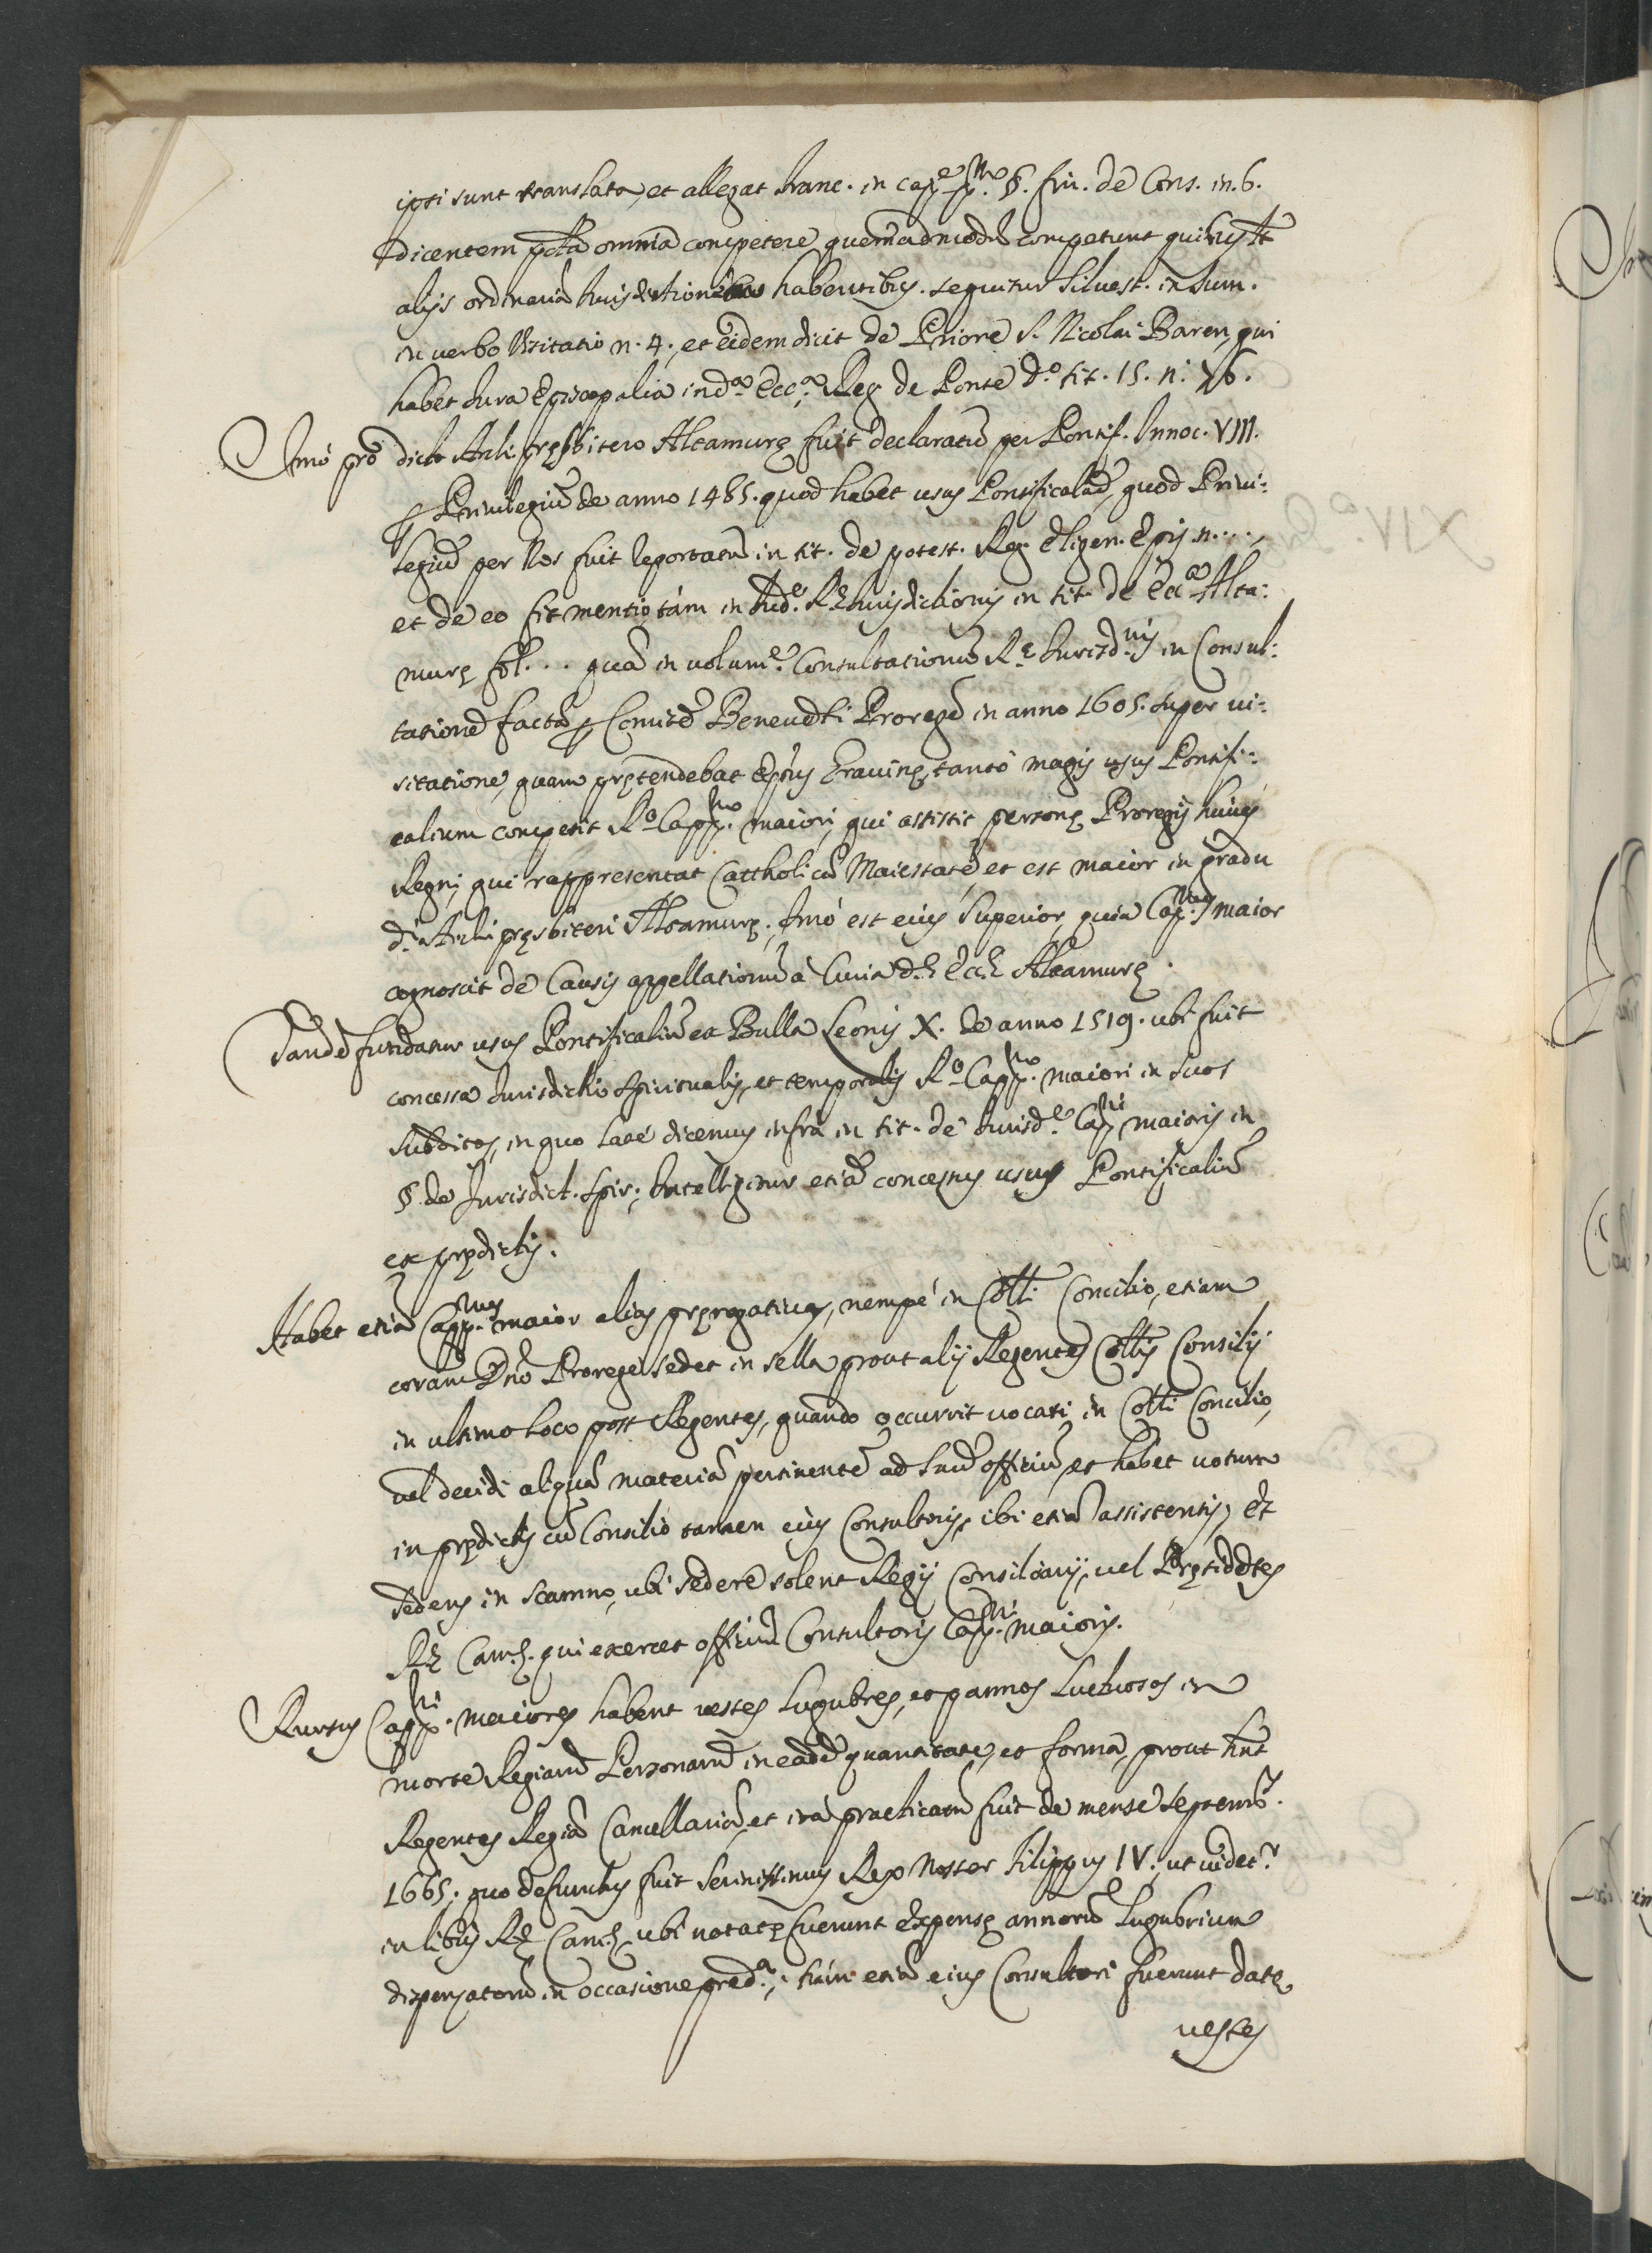 ipsi sunt translata, et allegat Franc. in cap.e p.mo §. fin. de Cens. in. 6.
dicentem pñta omnia competere quemadmodũ competunt quibuscũq;
alijs ordinariã Iurisdictionẽ habentibus. sequitur Siluest. in Sum.
in uerbo Visitatio n. 4., et eidem dicit de Priore S. Nicolai Baren, qui
habet Iura Episcopalia in d.a Ecc.a Reg. de Ponte d.o tit. 15. n. 76.
Imò pro dicto Archipręsbitero Altamurę fuit declaratũ per Pontif. Innoc. VIII.
Priuilegiũ de anno 1485. quod habet usus Pontificaliũ, quod Priui:
legiũ per Nos fuit reportatũ in tit. de potest. Reg. Eligen. Epis n....,
et de eo fit mentio tàm in Ind.e Rę Iurisdictionis in tit. de Ecc.a Alta:
murę fol... quã in uolum.e Consultationũ R.ę Iurisd.nis in Consul:
tatione facta Comitẽ Beneuẽti Proregẽ in anno 1605. super ui:
sitatione, quam prętendebat Epũs Grauinę, tantò magis usus Pontifi:
calium competit R.o Capp.no maiori, qui assistit personę Proregis huius
Regni, qui rappresentat Cattholicã Maiestatẽ et est maior in gradu
d.i Archipręsbiteri Altamurę. Imò est eius Superior, quia Cap.nus maior
cognoscit de Causis appellationũ à Curia d.ę Eccę Altamurę.
Tandẽ fundatur usus Pontificaliũ ex Bulla Leonis X. de anno 1519. ubi fuit
concessa Iurisdictio spiritualis, et temporalis R.o Capp.no maiori in suos
subditos, in quo latè dicemus infrà in tit. de Iurisd.e Cap.ni maioris in
§. de Jurisdict. spir.; Intelligitur etiã concessus usus Pontificaliũ
ex prędictis.
Habet etiã Capp.nus maior alias pręrogatiuas, nempè in Colli Concilio, etiam
coram Dño Prorege sedet in sella prout alij Regentes Collis Consilij
in ultimo loco post Regentes, quando occurrit uocari in Colli Concilio,
uel decidi aliquã materiã pertinentẽ ad suũ officiũ, et habet uotum
in prędictis cũ Consilio tamen eius Consultoris, ibi etiã assistentis, et
sedens in scamno, ubi sedere solent Regij Consiliarij, uel Pręsidẽtes
Rę Cam.ę. qui exercet officiũ Consultoris Capp.ni maioris.
Rursus Capp.ni maiores habent uestes lugubres, et pannos luctuosos in
morte Regiarũ Personarũ in eadẽ quantitate, et forma, prout hñt
Regentes Regiã Cancellariã, et ità practicatũ fuit de mense septemb.
1665. quo defunctus fuit serinissimus Rex Noster Filippus IV., ut uidet.r
in libris Rę Cam.ę, ubi notatę fuerunt expensę annorũ lugubrium
dispensatorũ in occasione pred.a; hinc etiã eius Consultori fuerunt datę
uestes